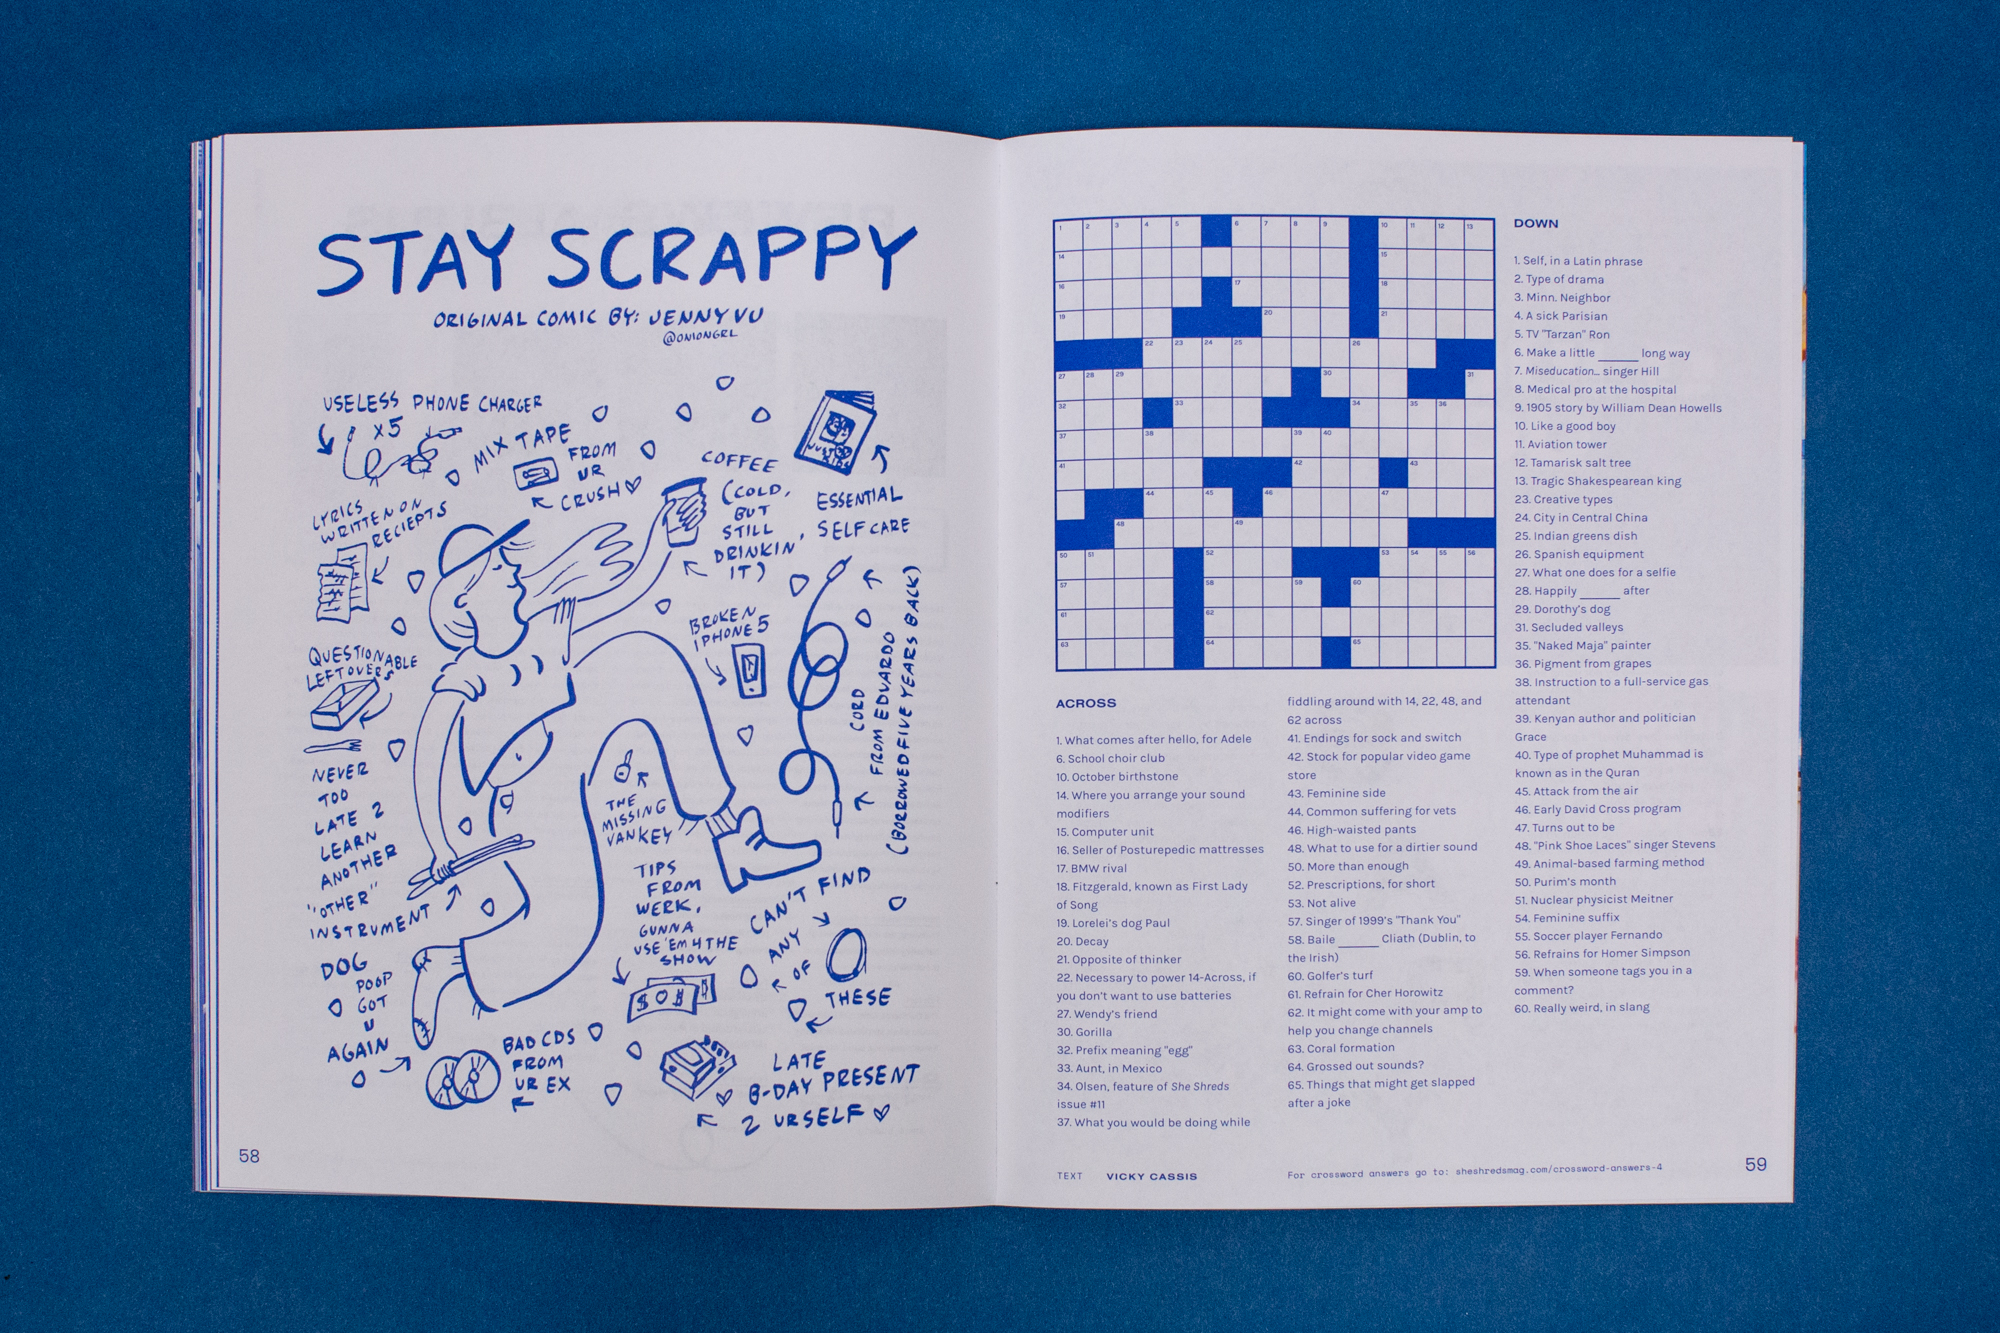 STAY SCRAPPY
ORIGINAL COMIC BY: JENNY VU
@ONIONGRL
USELESS PHONE CHARGER
X5
MIX TAPE
FROM
UR
CRUSH
COFFEE
(COLD,
BUT
STILL
DRINKIN'
IT)
JUST
KIDS
ESSENTIAL
SELF CARE
LYRICS
WRITTEN ON
RECIEPTS
BROKEN
IPHONE 5
CORD
FROM EDUARDO
(BORROWED FIVE YEARS BACK)
QUESTIONABLE
LEFTOVERS
NEVER
TOO
LATE 2
LEARN
ANOTHER
"OTHER"
INSTRUMENT
THE
MISSING
VAN KEY
TIPS
FROM
WERK,
GUNNA
USE 'EM 4 THE
SHOW
CAN'T FIND
ANY
OF
THESE
DOG
POOP
GOT
U
AGAIN
BAD CDS
FROM
UR EX
LATE
B-DAY PRESENT
2 URSELF
58
1 2 3 4 5 6 7 8 9 10 11 12 13
14 15
16 17 18
19 20 21
22 23 24 25 26
27 28 29 30 31
32 33 34 35 36
37 38 39 40
41 42 43
44 45 46 47
48 49
50 51 52 53 54 55 56
57 58 59 60
61 62
63 64 65
ACROSS
1. What comes after hello, for Adele
6. School choir club
10. October birthstone
14. Where you arrange your sound
modifiers
15. Computer unit
16. Seller of Posturepedic mattresses
17. BMW rival
18. Fitzgerald, known as First Lady
of Song
19. Lorelei's dog Paul
20. Decay
21. Opposite of thinker
22. Necessary to power 14-Across, if
you don't want to use batteries
27. Wendy's friend
30. Gorilla
32. Prefix meaning "egg"
33. Aunt, in Mexico
34. Olsen, feature of She Shreds
issue #11
37. What you would be doing while
fiddling around with 14, 22, 48, and
62 across
41. Endings for sock and switch
42. Stock for popular video game
store
43. Feminine side
44. Common suffering for vets
46. High-waisted pants
48. What to use for a dirtier sound
50. More than enough
52. Prescriptions, for short
53. Not alive
57. Singer of 1999's "Thank You"
58. Baile ______ Cliath (Dublin, to
the Irish)
60. Golfer's turf
61. Refrain for Cher Horowitz
62. It might come with your amp to
help you change channels
63. Coral formation
64. Grossed out sounds?
65. Things that might get slapped
after a joke
DOWN
1. Self, in a Latin phrase
2. Type of drama
3. Minn. Neighbor
4. A sick Parisian
5. TV "Tarzan" Ron
6. Make a little ______ long way
7. Miseducation... singer Hill
8. Medical pro at the hospital
9. 1905 story by William Dean Howells
10. Like a good boy
11. Aviation tower
12. Tamarisk salt tree
13. Tragic Shakespearean king
23. Creative types
24. City in Central China
25. Indian greens dish
26. Spanish equipment
27. What one does for a selfie
28. Happily ______ after
29. Dorothy's dog
31. Secluded valleys
35. "Naked Maja" painter
36. Pigment from grapes
38. Instruction to a full-service gas
attendant
39. Kenyan author and politician
Grace
40. Type of prophet Muhammad is
known as in the Quran
45. Attack from the air
46. Early David Cross program
47. Turns out to be
48. "Pink Shoe Laces" singer Stevens
49. Animal-based farming method
50. Purim's month
51. Nuclear physicist Meitner
54. Feminine suffix
55. Soccer player Fernando
56. Refrains for Homer Simpson
59. When someone tags you in a
comment?
60. Really weird, in slang
TEXT VICKY CASSIS
For crossword answers go to: sheshredsmag.com/crossword-answers-4
59